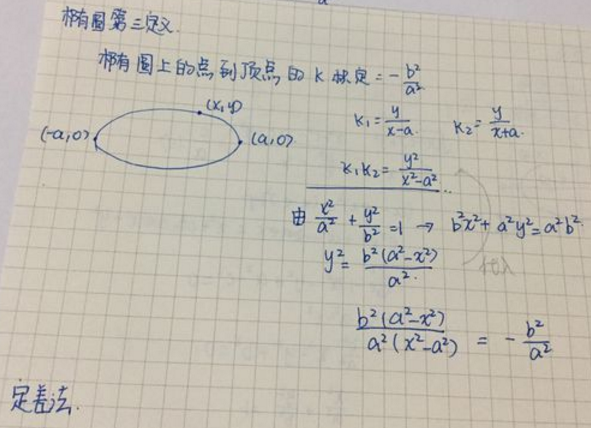 椭圆第三定义
椭圆上的点到顶点的 K 恒定 = -b²/a²
(x,y)
(-a,0)
(a,0)
K₁ = y/(x-a)  K₂ = y/(x+a)
K₁K₂ = y²/(x²-a²)
由 x²/a² + y²/b² = 1 → b²x² + a²y² = a²b²
y² = b²(a²-x²)/a²
代入
b²(a²-x²)/a²(x²-a²) = -b²/a²
定差法.